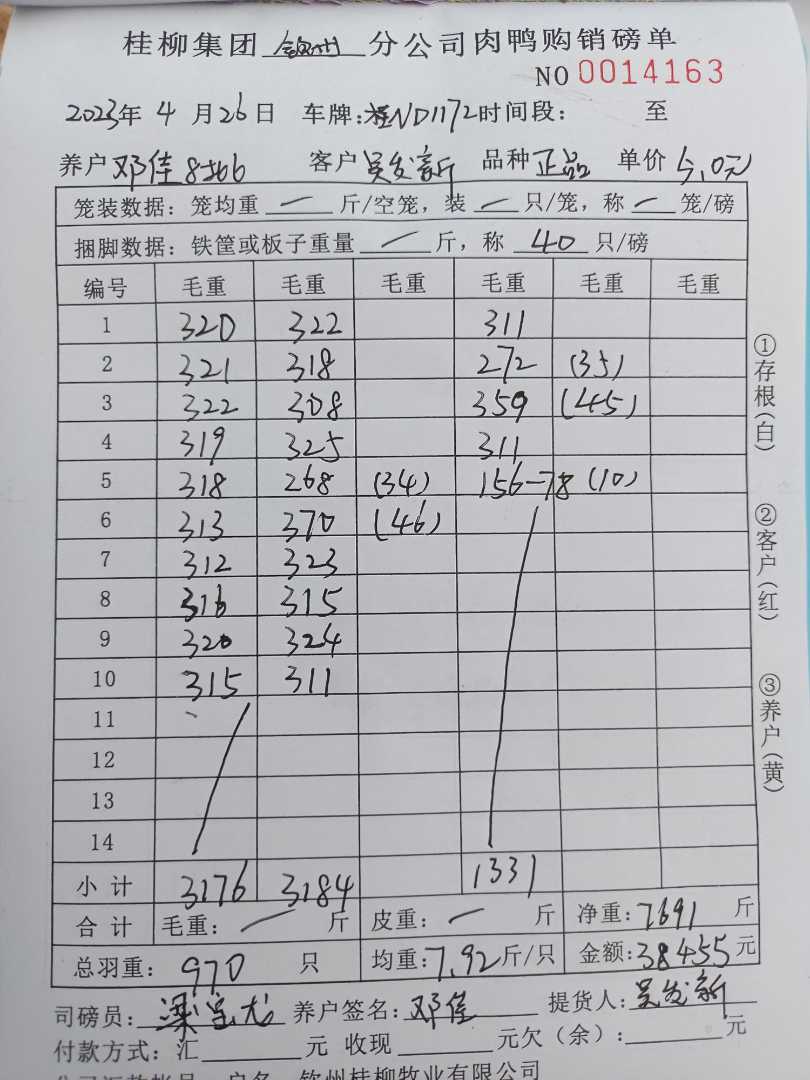 桂柳集团 钦州 分公司肉鸭购销磅单
NO 0014163
2023年 4 月 26 日 车牌:桂ND1172 时间段: 至
养户 邓佳 客户 吴发新 品种 正品 单价 5.0元
笼装数据: 笼均重 — 斤/空笼, 装 — 只/笼, 称 — 笼/磅
捆脚数据: 铁筐或板子重量 — 斤, 称 40 只/磅
编号 毛重 毛重 毛重 毛重 毛重 毛重
1 320 322 311
2 321 318 272 (35)
3 322 308 359 (45)
4 319 325 311
5 318 268 (34) 156-78 (10)
6 313 370 (46)
7 312 323
8 316 315
9 320 324
10 315 311
11
12
13
14
小计 3176 3184 1331
合计 毛重: — 斤 皮重: — 斤 净重: 7691 斤
总羽重: 970 只 均重: 7.92 斤/只 金额: 38455 元
司磅员: 梁 养户签名: 邓佳 提货人: 吴发新
付款方式: 汇 元 收现 元欠(余): 元
公司汇款帐号 户名 钦州桂柳牧业有限公司
①存根(白)
②客户(红)
③养户(黄)